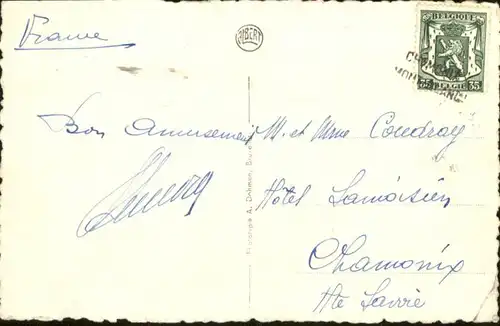 France
ALBERT
BELGIQUE
35 BELGIE 35
Bon Amusement
M. et Mme Coudray
Hôtel Lamoisien
Chamonix
Hte Savoie
A. Dohmen, Bru